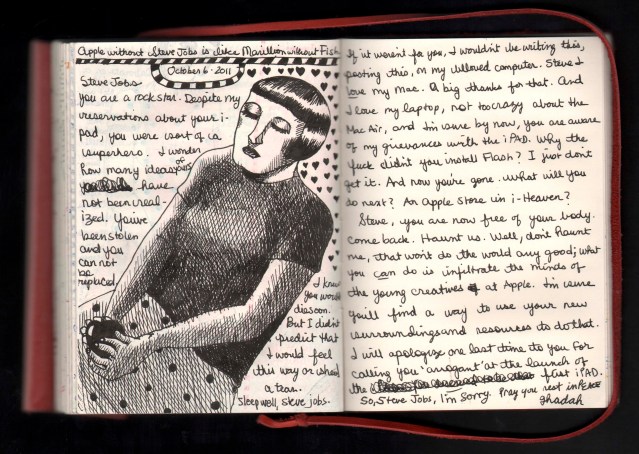 Apple without Steve Jobs is like Marillion without Fish
October 6 · 2011
Steve Jobs
you are a rockstar. Despite my
reservations about your i-
pad, you were sort of a
superhero. I wonder
how many ideas of yours
have
not been real-
ized. You've
been stolen
and you
can not
be
replaced.
I knew
you would
die soon.
But I didn't
predict that
I would feel
this way or shed
a tear.
Sleep well, Steve Jobs.
If it weren't for you, I wouldn't be writing this,
posting this, on my beloved computer. Steve I
love my Mac. A big thanks for that. And
I love my laptop, not too crazy about the
Mac Air, and I'm sure by now, you are aware
of my grievances with the iPAD. Why the
fuck didn't you install Flash? I just don't
get it. And now you're gone. What will you
do next? An Apple Store in i-Heaven?
Steve, you are now free of your body.
Come back. Haunt us. Well, don't haunt
me, that won't do the world any good; what
you can do is infiltrate the minds of
the young creatives at Apple. I'm sure
you'll find a way to use your new
surroundings and resources to do that.
I will apologize one last time to you for
calling you "arrogant" at the launch of
the first iPAD.
So, Steve Jobs, I'm sorry. Pray you rest in PEACE
ghadah